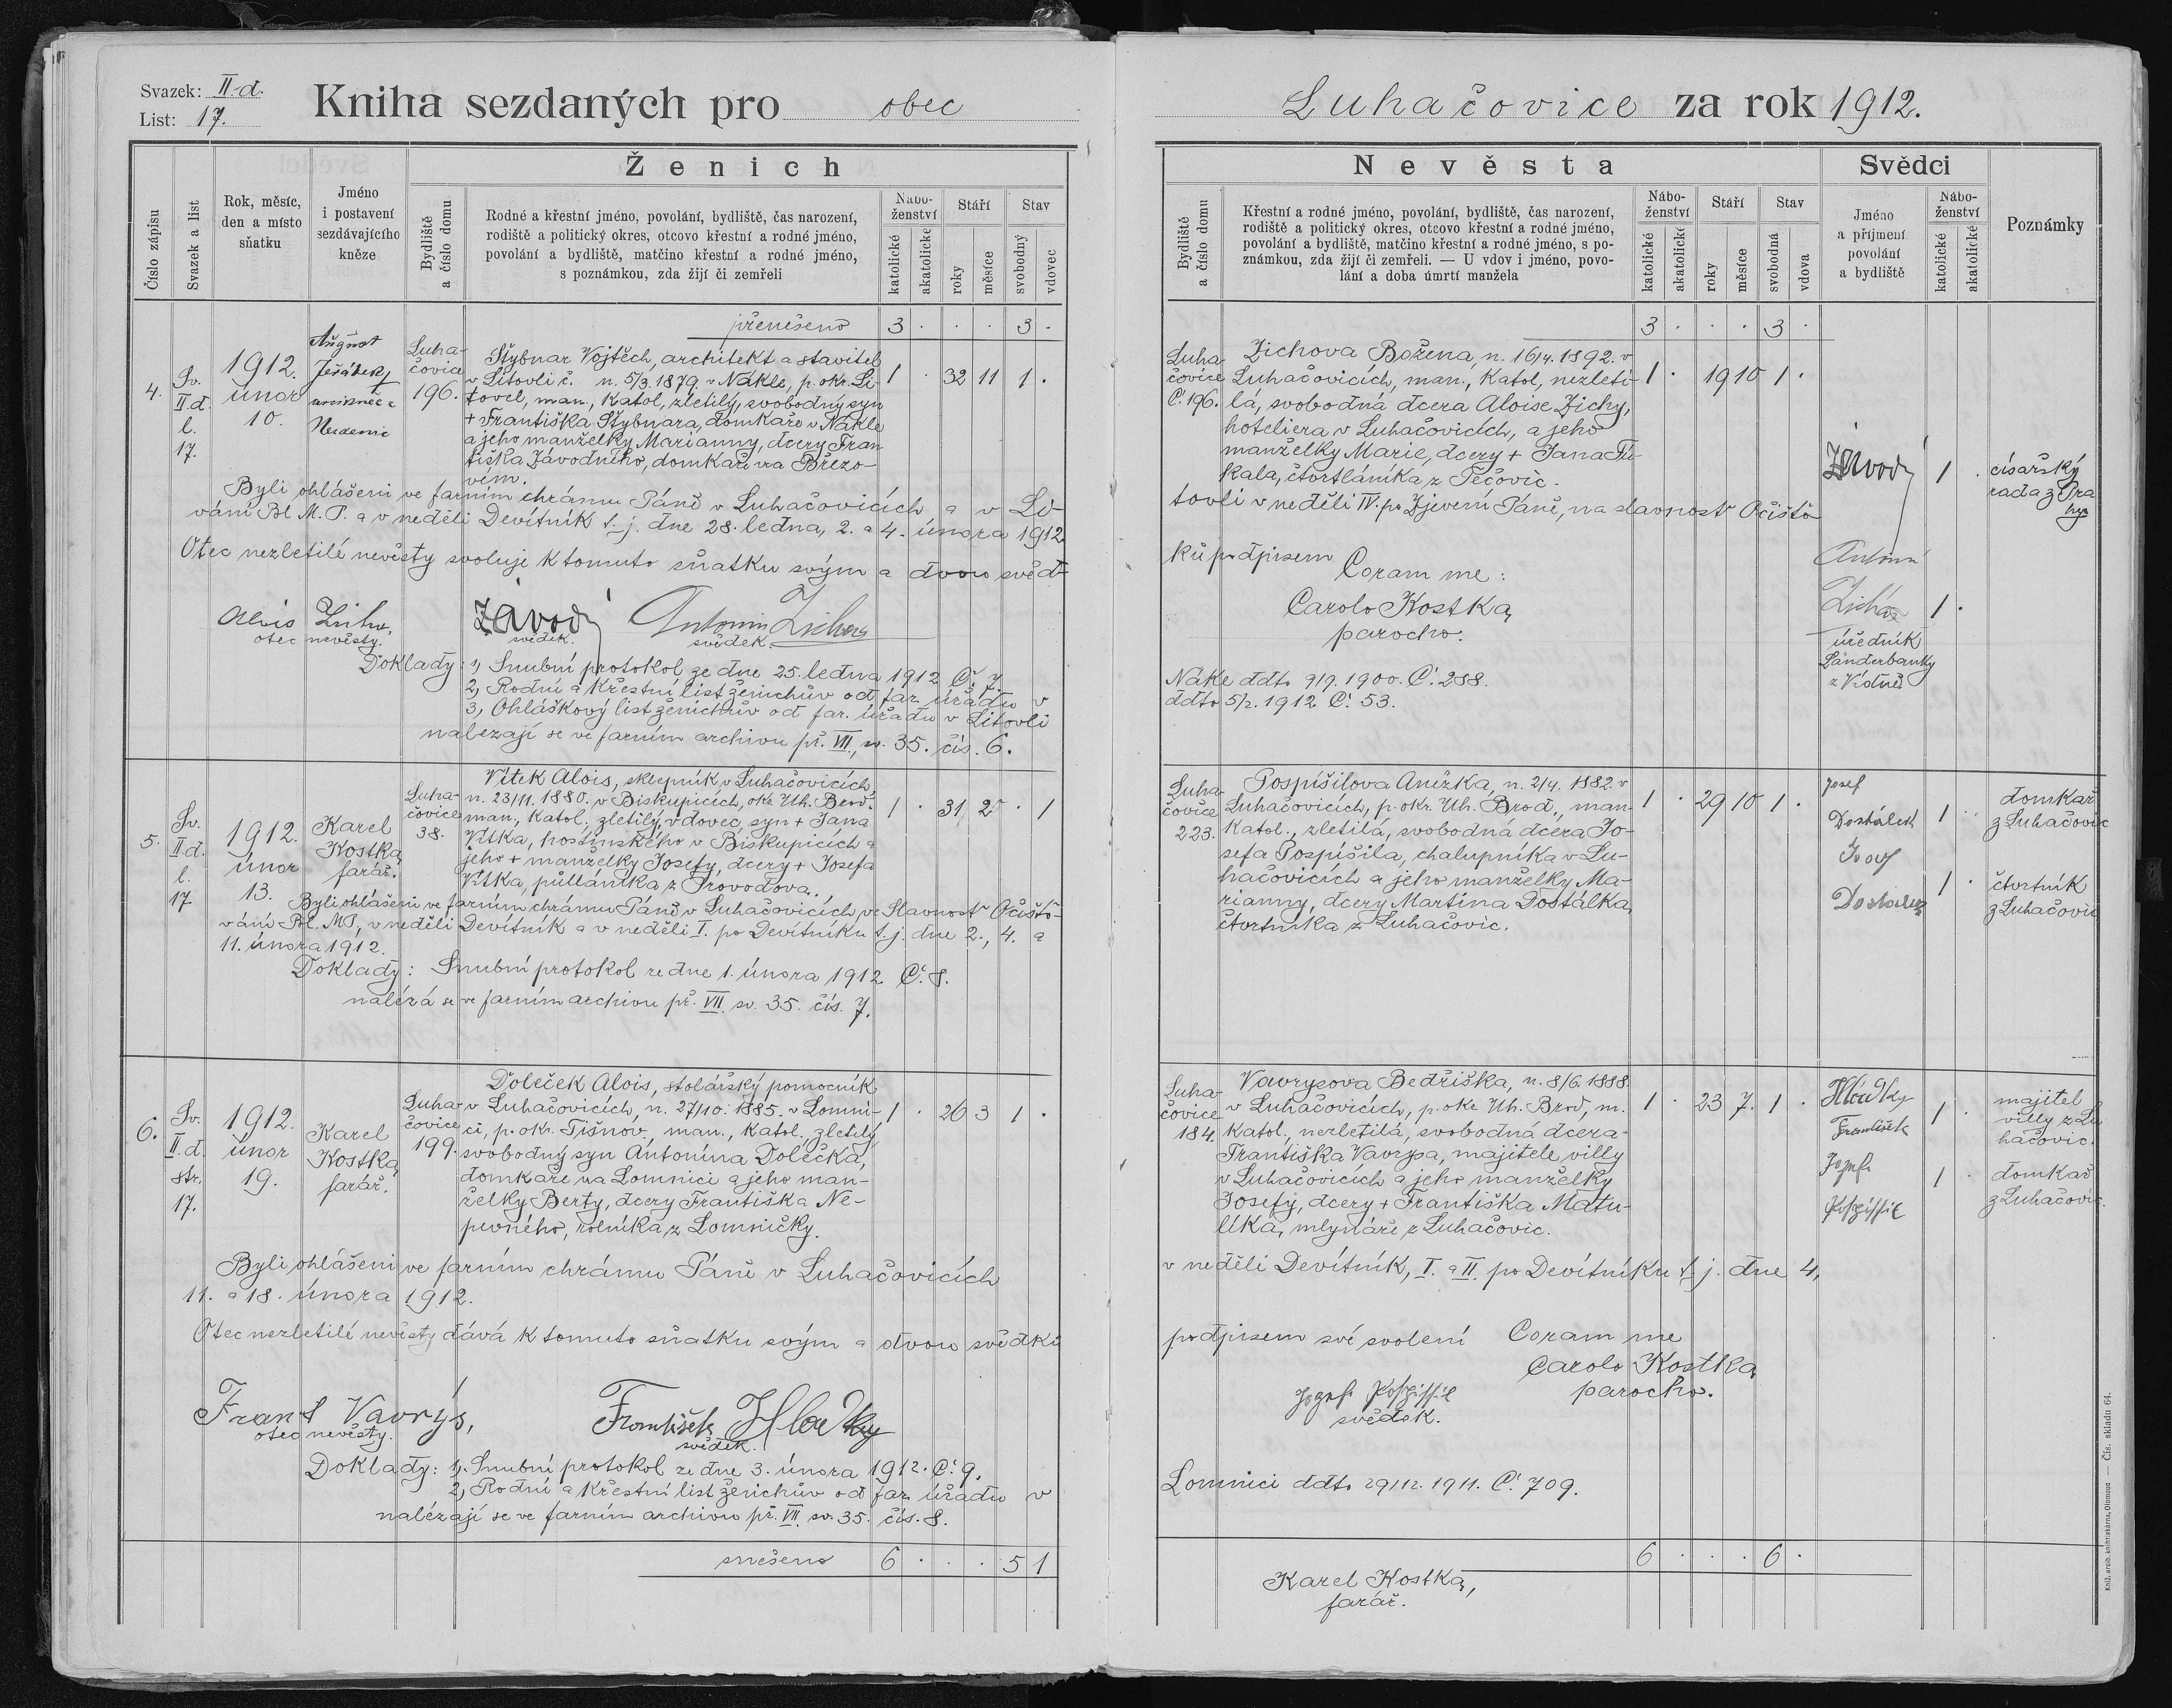 Svazek: II.d.
List: 17.
Kniha sezdaných pro obec
Číslo zápisu
Svazek a list
Rok, měsíc,
den a místo
sňatku
Jméno
i postavení
sezdávajícího
kněze
Ženich
Bydliště
a číslo domu
Rodné a křestní jméno, povolání, bydliště, čas narození,
rodiště a politický okres, otcovo křestní a rodné jméno,
povolání a bydliště, matčino křestní a rodné jméno,
s poznámkou, zda žijí či zemřeli
Nábo-
ženství
katolické
akatolické
Stáří
roky
měsíce
Stav
svobodný
vdovec
přenešeno 3 . . . 3 .
4.
Sv.
II.d.
l.
17.
1912.
únor
10.
August
Jeřábek
Luha-
čovice
196.
Štybnar Vojtěch, architekt a stavitel
v Litovli č. n. 5/3. 1879. v Nákle, p. okr. Li-
tovel, man., katol., zletilý, svobodný syn
+ Františka Štybnara, domkaře v Nákle
a jeho manželky Marianny, dcery Fran
tiška Závodného, domkaře na Březo-
vém.
1 . 32 11 1 .
Byli ohlášeni ve farním chrámu Páně v Luhačovicích a v Li-
vání Bl. M. P. a v neděli Devítník t. j. dne 28. ledna, 2. a 4. února 1912.
Otec nezletilé nevěsty svoluje k tomuto sňatku svým a dvou svěd-
Alois Zicha,
otec nevěsty.
Závodý
svědek.
Antonín Zicha
svědek.
Doklady: 1, Snubní protokol ze dne 25. ledna 1912 Č. 7.
2, Rodní a křestní list ženichův od far. úřadu v
3, Ohláškový list ženichův od far. úřadu v Litovli
nalezají se ve farním archivu př. VII., sv. 35. čís. 6.
5.
Sv.
II.d.
l.
17.
1912.
únor
13.
Karel
Kostka,
farář.
Luha-
čovice
38.
Vítek Alois, sklepník v Luhačovicích
n. 23/11. 1880. v Biskupicích, okr. Uh. Brod.
man., katol. zletilý, vdovec, syn + Jana
Vítka, hostinského v Biskupicích a
jeho + manželky Josefy, dcery + Josefa
Vítka, půlláníka z Provodova.
1 . 31 2 . 1
Byli ohlášeni ve farním chrámu Páně v Luhačovicích, ve Slavnost Očišťo-
vání Bl. M. P., v neděli Devítník a v neděli I. po Devítníku t. j. dne 2., 4. a
11. února 1912.
Doklady: Snubní protokol ze dne 1. února 1912 Č. 8.
nalézá se ve farním archivu př. VII. sv. 35. čís. 7.
6.
Sv.
II.d.
str.
17.
1912.
únor
19.
Karel
Kostka,
farář.
Luha-
čovice
199.
Doleček Alois, stolářský pomocník
v Luhačovicích, n. 27/10. 1885. v Lomni-
ci, p. okr. Tišnov., man., katol., zletilý,
svobodný syn Antonína Dolečka,
domkaře na Lomnici a jeho man-
želky Berty, dcery Františka Ne-
pevného, rolníka z Lomničky.
1 . 26 3 1 .
Byli ohlášeni ve farním chrámu Páně v Luhačovicích
11. a 18. února 1912.
Otec nezletilé nevěsty dává k tomuto sňatku svým a dvou svědků
Frant Vavrýs,
otec nevěsty.
František Hladký
svědek.
Doklady: 1, Snubní protokol ze dne 3. února 1912. Č. 9.
2, Rodní a křestní list ženichův od far. úřadu v
nalézají se ve farním archivu př. VII. sv. 35. čís. 8.
snešeno 6 . . . 5 1
Luhačovice za rok 1912.
Nevěsta
Bydliště
a číslo domu
Křestní a rodné jméno, povolání, bydliště, čas narození,
rodiště a politický okres, otcovo křestní a rodné jméno,
povolání a bydliště, matčino křestní a rodné jméno, s po-
známkou, zda žijí či zemřeli. — U vdov i jméno, povo-
lání a doba úmrtí manžela
Nábo-
ženství
katolické
akatolické
Stáří
roky
měsíce
Stav
svobodná
vdova
Svědci
Jméno
a příjmení
povolání
a bydliště
Nábo-
ženství
katolické
akatolické
Poznámky
3 . . . 3 .
Luha-
čovice
Č. 196.
Zichova Božena, n. 16/4. 1892. v
Luhačovicích, man., katol., nezleti-
lá, svobodná dcera Aloise Zichy,
hoteliera v Luhačovicích, a jeho
manželky Marie, dcery + Jana Tu-
kala, čtvrtláníka z Pečovic.
1 . 19 10 1 .
Závodý
1 .
císařský
rada z Pra
hy
tovli v neděli IV. po Zjevení Páně, na slavnost Očišťo-
ků podpisem
Coram me:
Carolo Kostka,
parocho.
Antonín
Zicha
1 .
úředník
Länderbanky
z Vídně
Nákle ddto 9/9. 1900. Č. 288.
ddto 5/2. 1912 Č. 53.
Luha-
čovice
223.
Pospíšilova Anežka, n. 2/4. 1882. v
Luhačovicích, p. okr. Uh. Brod., man-
katol., zletilá, svobodná dcera Jo-
sefa Pospíšila, chalupníka v Lu-
hačovicích a jeho manželky Ma-
rianny, dcery Martina Dostálka,
čtvrtníka z Luhačovic.
1 . 29 10 1 .
Josef
Dostálek
1 .
domkař
z Luhačovic
Josef
Dostalek
1 .
čtvrtník
z Luhačovic
Luha-
čovice
184.
Vavrysova Bedřiška, n. 8/6. 1888.
v Luhačovicích, p. okr. Uh. Brod, m.
katol., nezletilá, svobodná dcera
Františka Vavrysa, majitele villy
v Luhačovicích a jeho manželky
Josefy, dcery + Františka Matu-
líka, mlynáře z Luhačovic.
1 . 23 7. 1 .
Hladký
František
1 .
majitel
villy z Lu
hačovic.
Jozef
Pospíssil
1 .
domkař
z Luhačovic.
v neděli Devítník, I. a II. po Devítníku t. j. dne 4,
podpisem své svolení
Coram me
Carolo Kostka,
parocho.
Jozef Pospíssil
svědek.
Lomnici ddto 29/12. 1911. Č. 709.
6 . . . 6 .
Karel Kostka,
farář.
Kniž. arcib. knihtiskárna, Olomouc — Čís. skladu 64.